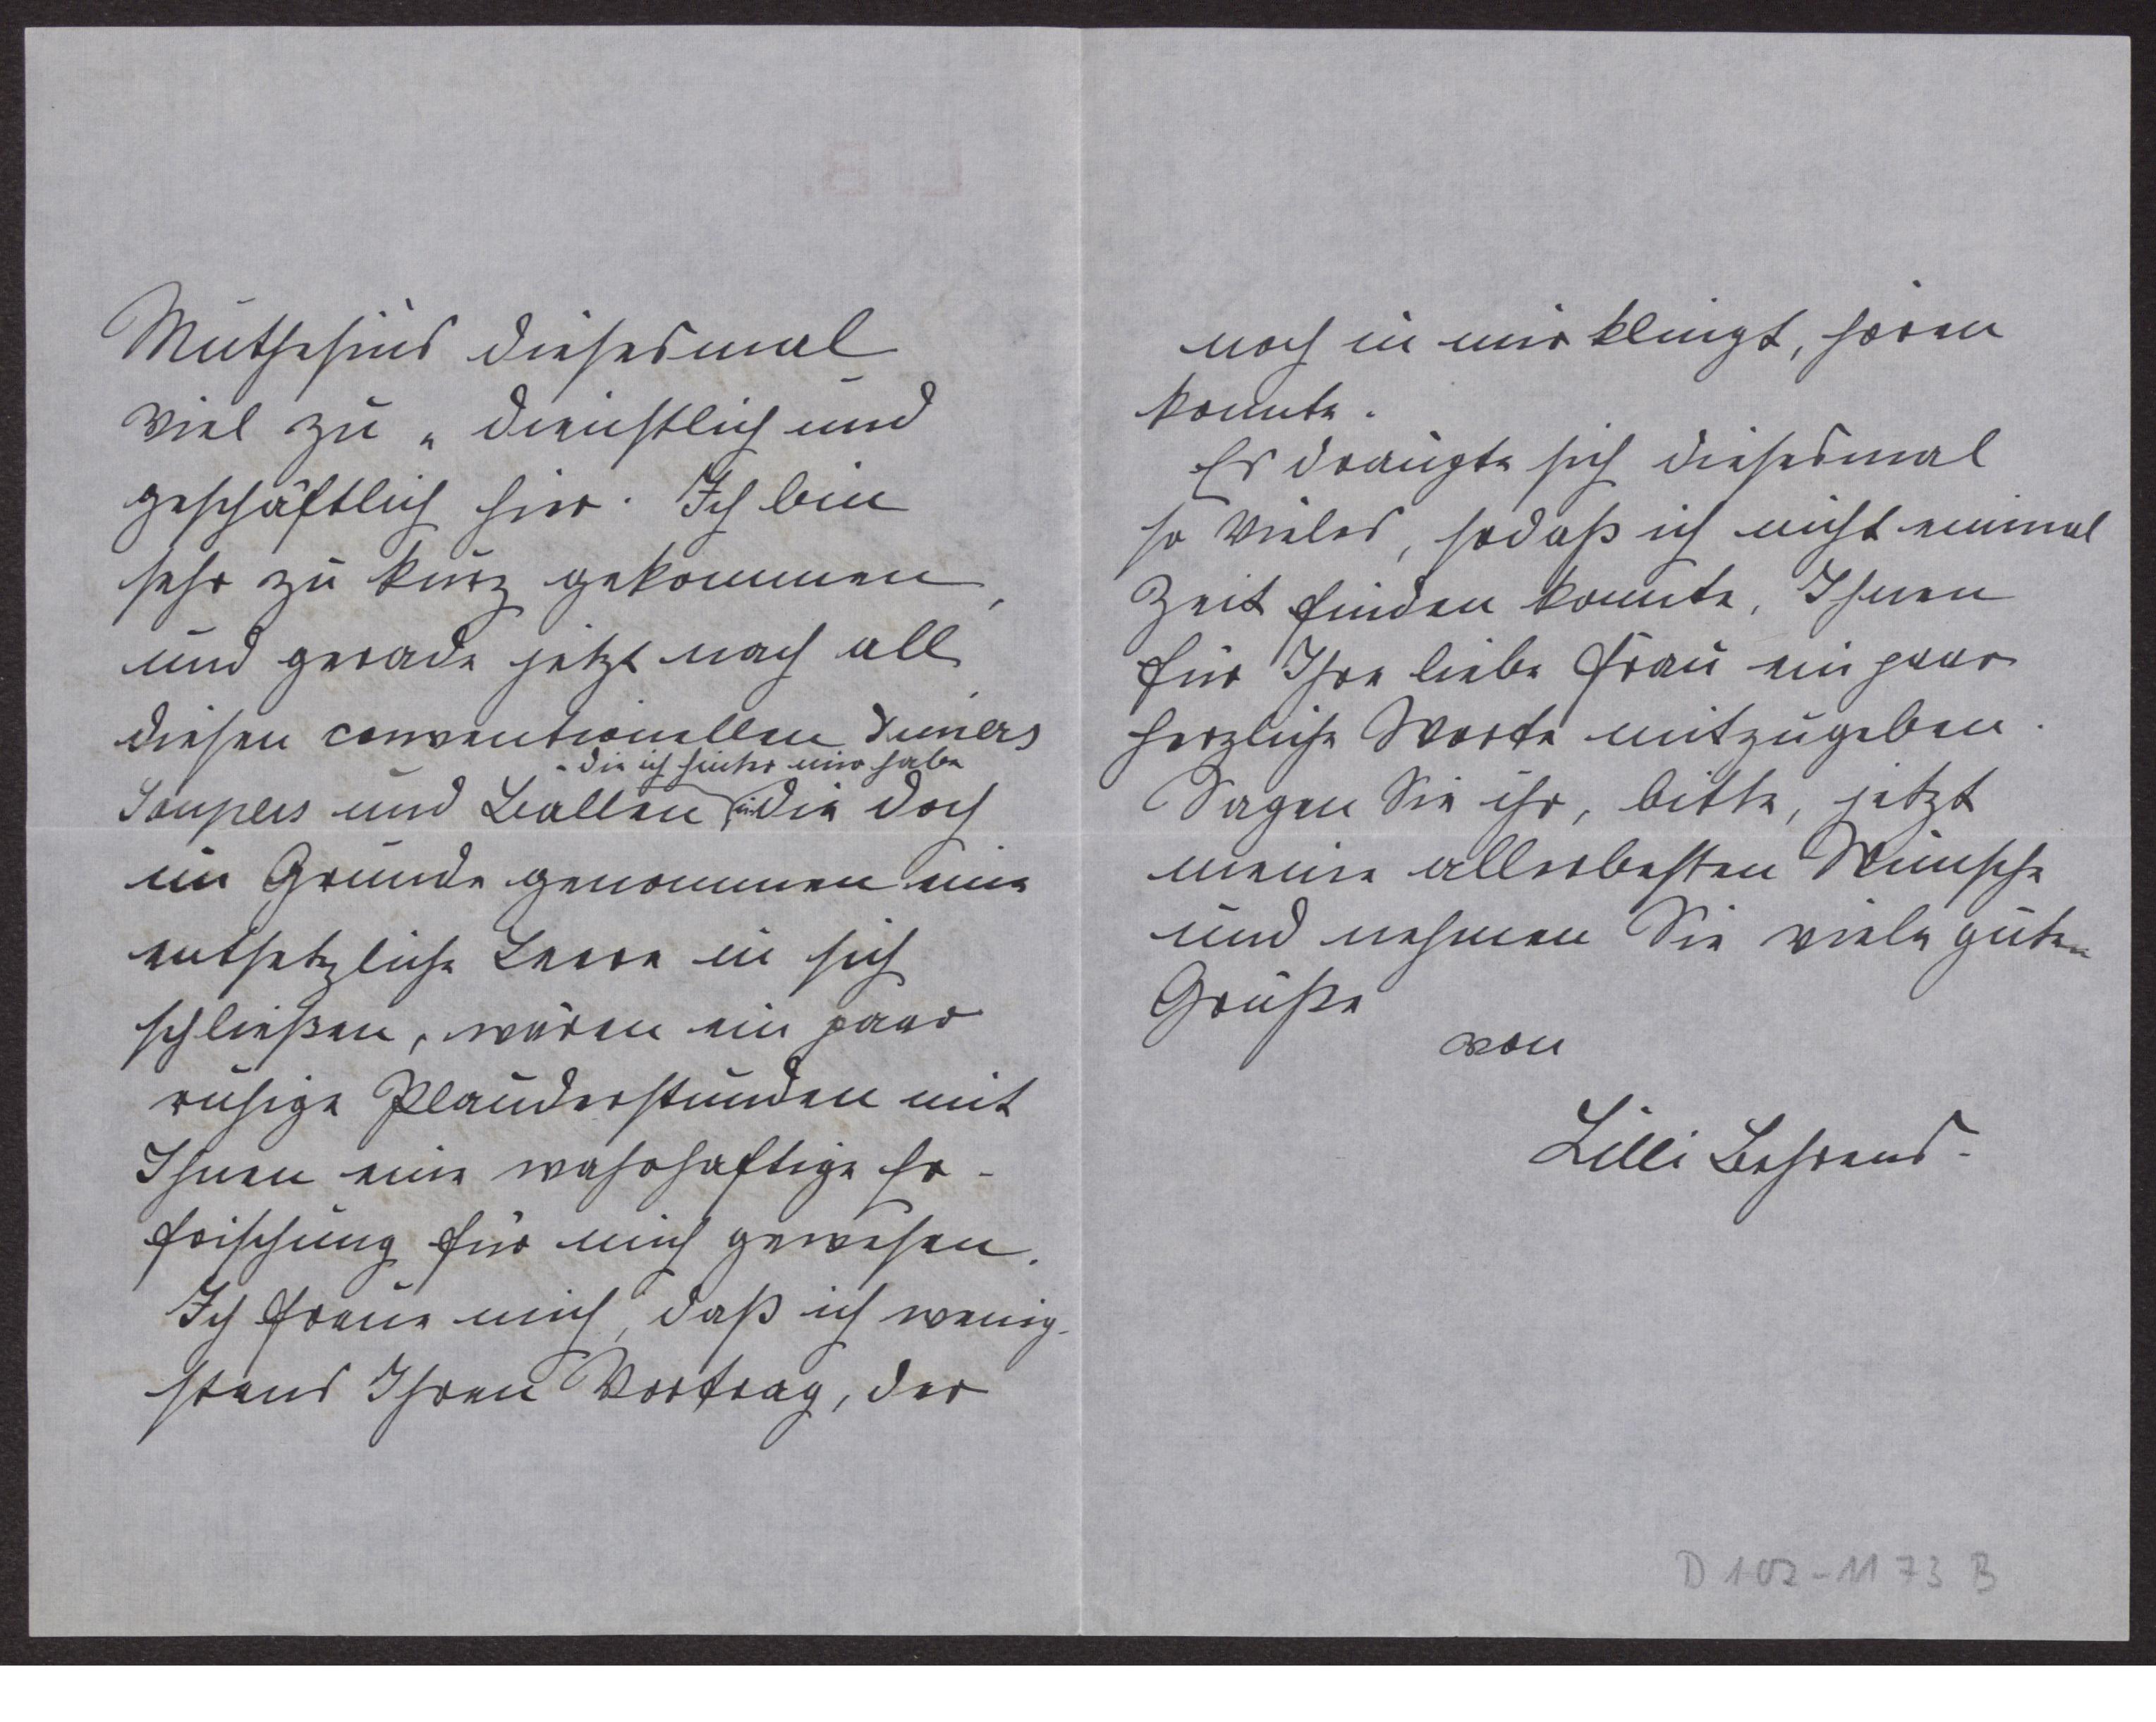 Muthesius diesesmal
viel zu „dienstlich und
geschäftlich hier. Ich bin
sehr zu kurz gekommen,
und gerade jetzt nach all
diesen conventionellen Diners
- die ich hinter mir habe
Soupers und Bällen und die doch
im Grunde genommen eine
entsetzliche Leere in sich
schließen, wären ein paar
ruhige Plauderstunden mit
Ihnen eine wahrhaftige Er-
frischung für mich gewesen.
Ich freue mich, daß ich wenig-
stens Ihren Vortrag, der
noch in mir klingt, hören
konnte.
Es drängte sich diesesmal
so vieles, sodaß ich nicht einmal
Zeit finden konnte, Ihnen
für Ihre liebe Frau ein paar
herzliche Worte mitzugeben.
Sagen Sie ihr, bitte, jetzt
meine allerbesten Wünsche
und nehmen Sie viele guten
Grüße
von
Lilli Behrens.
D 102-1173 B